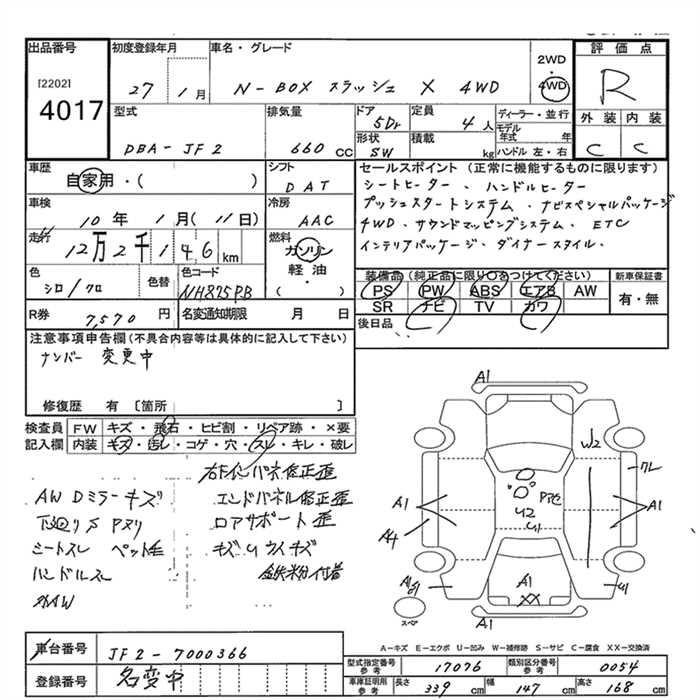 出品番号
[2202]
4017
初度登録年月
27 1月
車名・グレード
N-BOX スラッシュ X 4WD
2WD
・
4WD
評価点
R
外装 内装
C C
型式
DBA-JF2
排気量
660 CC
ドア
5Dr
定員
4人
形状
SW
積載
kg
ディーラー・並行
モデル年式 年
ハンドル 左・右
車歴
自家用・( )
シフト
DAT
車検
10年 1月(11日)
冷房
AAC
走行
12万2千146km
燃料
ガソリン
軽油
( )
色
シロ/クロ
色替
色コード
NH875PB
R券
7,570円
名変通知期限 月 日
セールスポイント(正常に機能するものに限ります)
シートヒーター、ハンドルヒーター
プッシュスタートシステム、ナビスペシャルパッケージ
4WD、サウンドマッピングシステム、ETC
インテリアパッケージ、ダイナースタイル、
装備品(純正品に限り○をつけてください)
PS PW ABS エアB AW
SR ナビ TV カワ
新車保証書
有・無
後日品
注意事項申告欄(不具合内容等は具体的に記入して下さい)
ナンバー 変更中
修復歴 有〔箇所 〕
検査員記入欄
FW キズ・飛石・ヒビ割・リペア跡・×要
内装 キズ・汚レ・コゲ・穴・スレ・キレ・破レ
AWDミラーキズ
下廻りS Pヌリ
シートスレ ペット毛
ハンドルス
エンドパネル修正歪
ロアサポート歪
鉄粉付着
A1
W2
A1
A4
A1
A1
U2
U1
A1
XX
U1
A1
スペア
A-キズ E-エクボ U-凹み W-補修跡 S-サビ C-腐食 XX-交換済
車台番号
JF2-7000366
登録番号
名変中
型式指定番号参考
17076
類別区分番号参考
0054
車庫証明用参考
長さ 339cm 幅 147cm 高さ 168cm